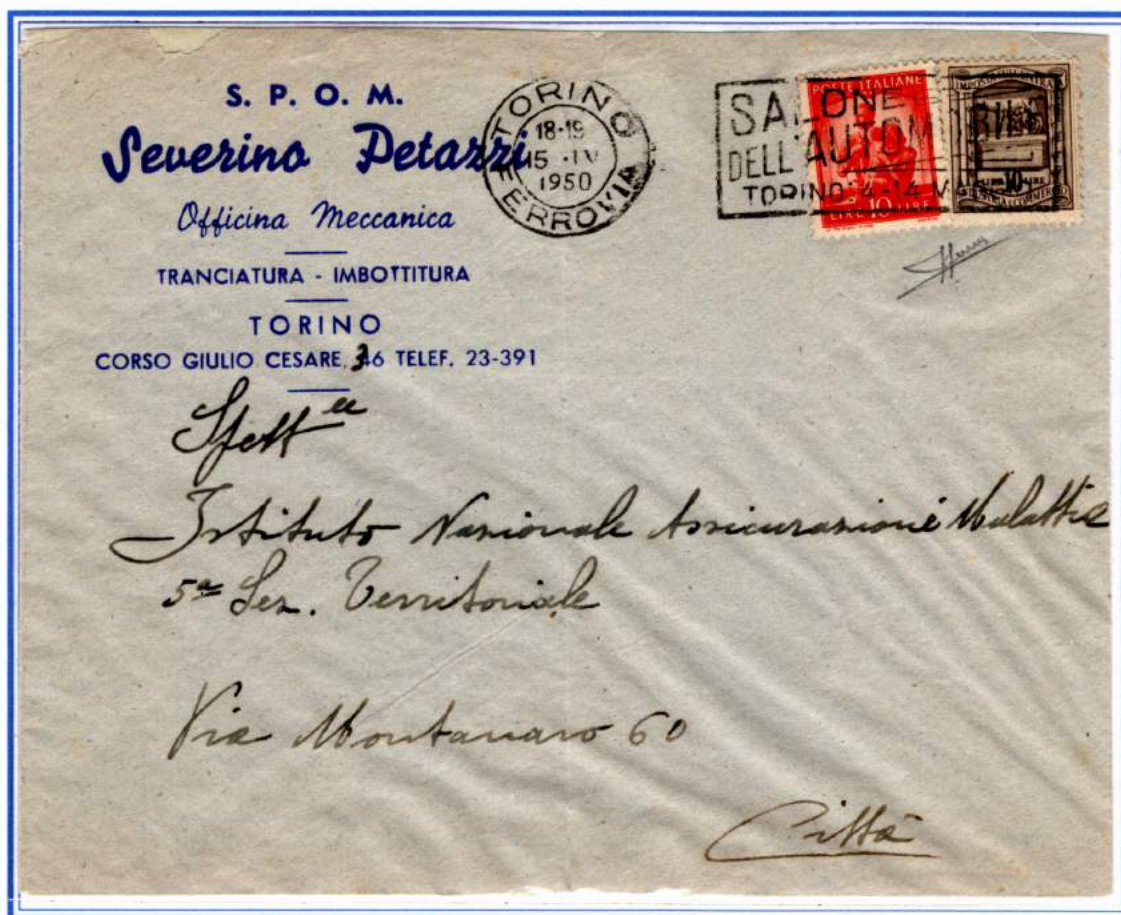 S. P. O. M.
Severino Petazzi
Officina Meccanica
TRANCIATURA - IMBOTTITURA
TORINO
CORSO GIULIO CESARE, 36 TELEF. 23-391
TORINO
18-19
15 • IV
1950
FERROVIA
SALONE
DELL'AUTOMOBILE
TORINO 4-14 V
POSTE ITALIANE
LIRE 10 LIRE
Spett le
Istituto Nazionale Assicurazione Malattie
5a Sez. Territoriale
Via Montanaro 60
Città